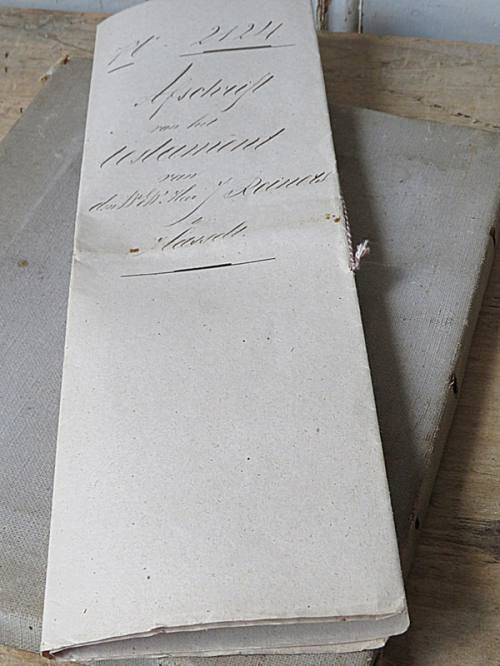 N°. 2124
Afschrift
van het
testament
van
den WelEd. Heer J Reiners
te
Hasselt.